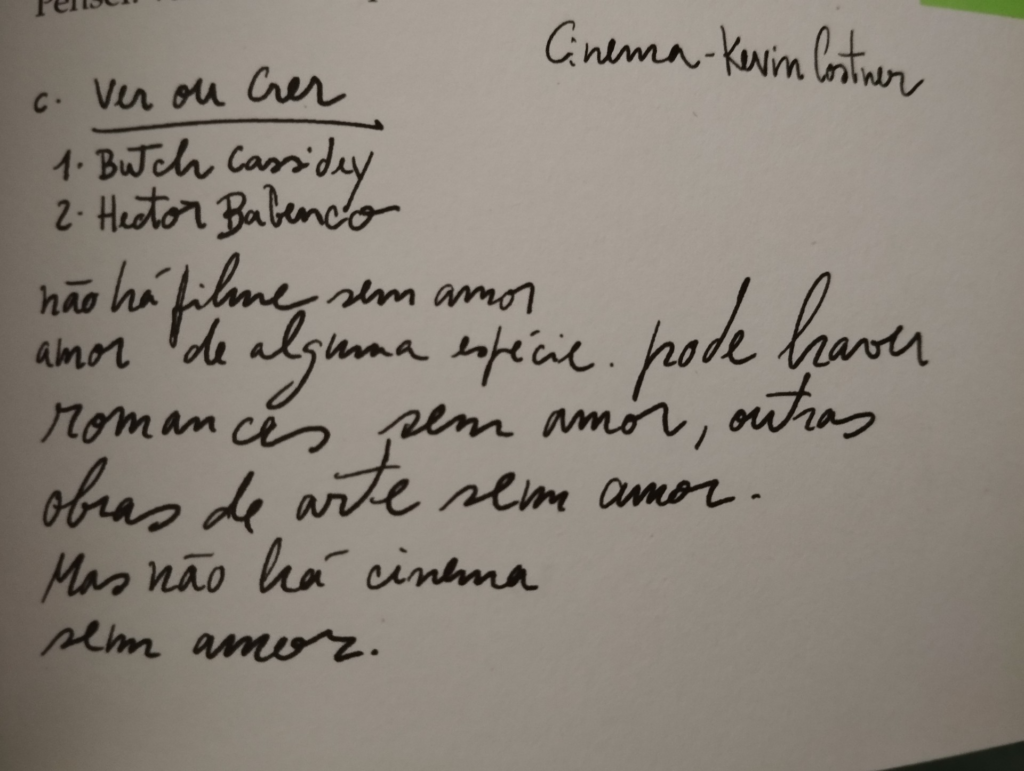 Pensei.
Cinema - Kevin Costner
c. Ver ou Crer
1. Butch Cassidey
2. Hector Babenco
não há filme sem amor
amor de alguma espécie. pode haver
romances sem amor, outras
obras de arte sem amor.
Mas não há cinema
sem amor.